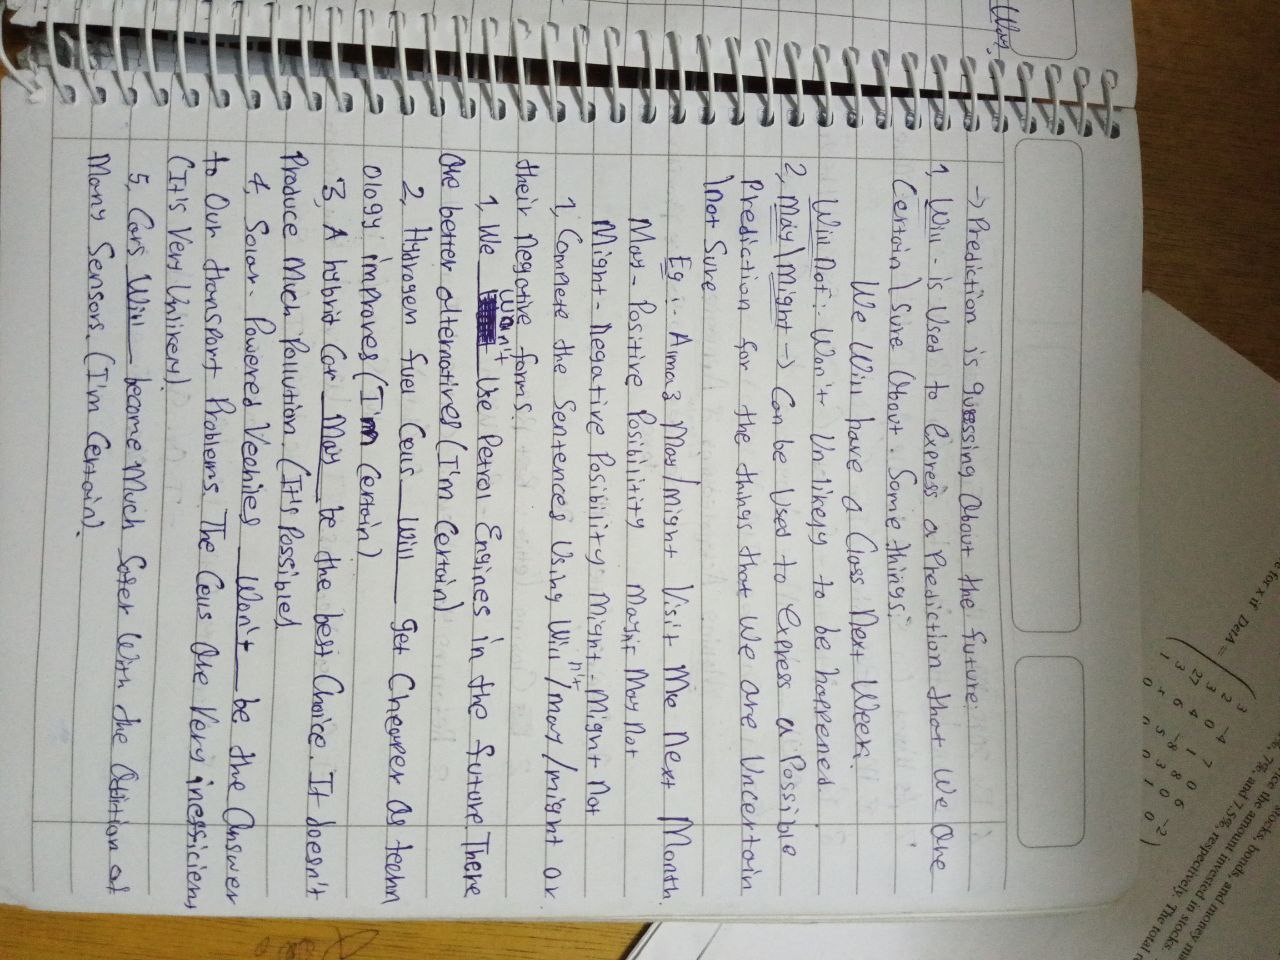 Way.
→ Prediction is guessing about the future.
1, Will - is used to express a prediction that we are
Certain \ sure about. Some things:
We will have a class next week.
Will not :- Won't Unlikely to be happened.
2, may \ might → Can be used to express a Possible
Prediction for the things that we are Uncertain
\ not sure
Eg :- Amaz may / might Visit me next month.
May - Positive Posibility mayn't May not
Might - negative Posibility might - mightn't Might not
1, Complete the sentences using will / may / might or
their negative forms.
1, We won't use Petrol Engines in the future. There
are better alternatives (I'm Certain)
2, Hydrogen fuel Cells will get Cheaper as techn
ology improves (I'm Certain)
3, A hybrid Car May be the best Choice. It doesn't
Produce Much Pollution. (It's Possible)
4, Solar - Powered Veahiles Won't be the answer
to Our transport Problems. The Cells are Very inefficient
(It's Very Unlikely)
5, Cars Will become Much Safer With the Adition of
Many Sensors. (I'm Certain).
e for x if DetA =
3 2 0 -4
3 4 1 7 0
27 6 -8 8 6
3 4 5 3 0 -2
1 0 0 0 1 0
the stocks, bonds, and money ma
, 7%, and 7.5%, respectively. The total r
the amount invested in stocks.